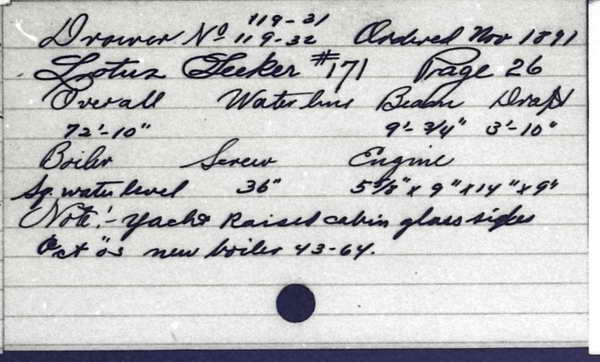 Drawer No 119-31
119-32 Ordered Nov 1891
Lotus Seeker #171 Page 26
Overall Waterline Beam Draft
72'-10" 9'-3/4" 3'-10"
Boiler Screw Engine
Sq. water level 36" 5 5/8" x 9" x 14" x 9"
Note:- Yacht Raised cabin glass sides
Oct '03 new boiler 43-64.